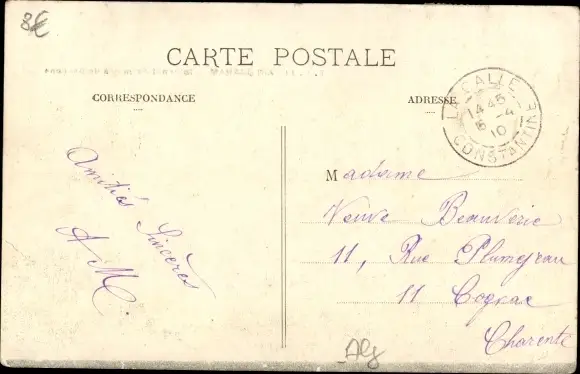 8€
CARTE POSTALE
CORRESPONDANCE
ADRESSE
LA CALLE
14 45
6 -4
10
CONSTANTINE
Amitiés Sincères
A M.
Madame
Veuve Beauverie
11, Rue Plumejeau
11 Cognac
Charente
Alg